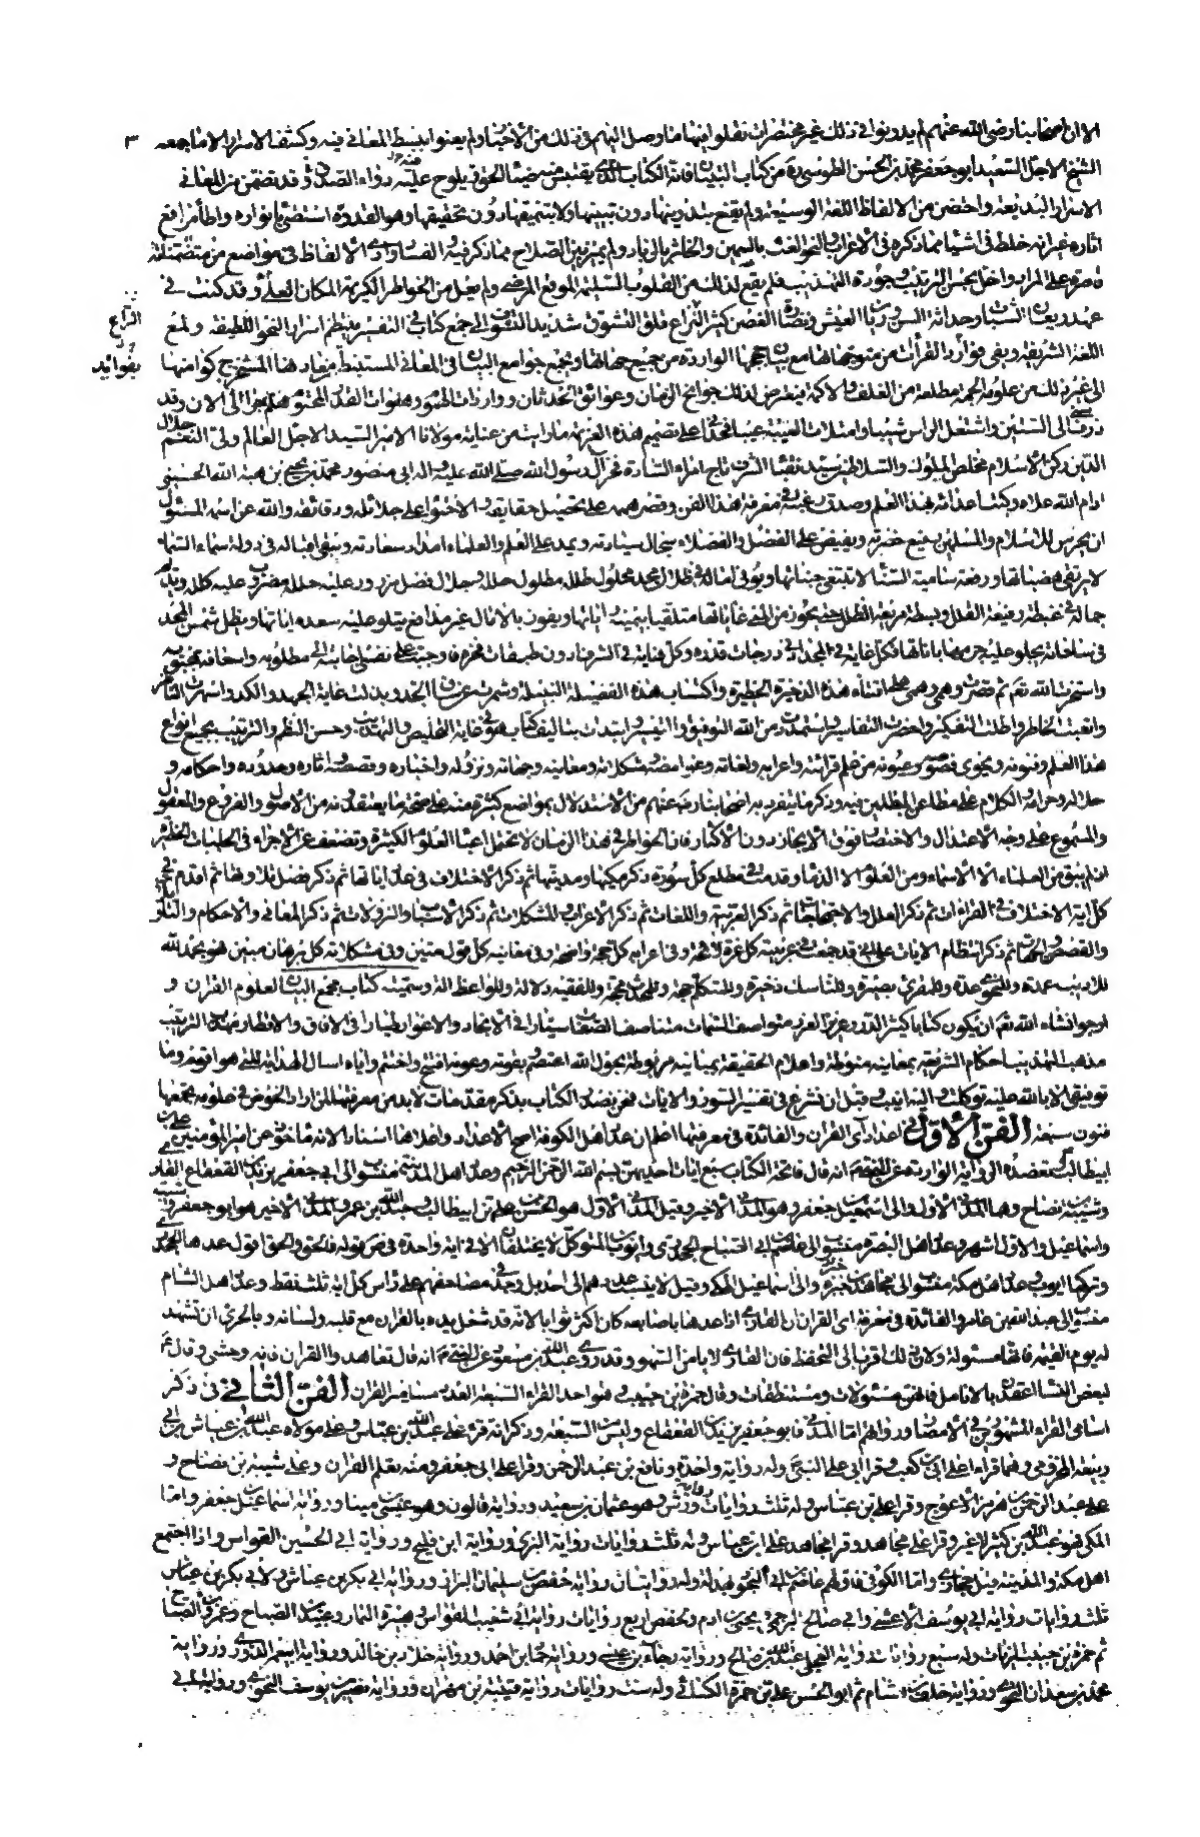 الا ان اصحابنا رضي الله عنهم لم يدونوا في ذلك غير مختصرات نقلوا فيها ما وصل اليهم في ذلك من الاخبار ولم يعنوا ببسط المعاني فيه وكشف الاسرار الا ما جمعه ٣
الشيخ الاجل السعيد ابو جعفر محمد بن الحسن الطوسي ره من كتاب التبيان فانه الكتاب الذي يقتبس منه ضياء الحق ويلوح عليه رواء الصدق وقد تضمن من المعاني
الاسرار البديعة واحتضن من الالفاظ اللغة الوسيعة ولم يقنع بتدوينها دون تبيينها ولا بتنميقها دون تحقيقها وهو القدوة استضيء بانواره واطأ مواقع
اثاره غير انه خلط في اشياء مما ذكره في الاعراب والنحو الغث بالسمين والخاثر بالزباد ولم يميز الصلاح مما ذكر فيه والفساد وادى الالفاظ في مواضع من متضمناته
قاصرة على المراد واخل بحسن الترتيب وجودة التهذيب فلم يقع لذلك من القلوب السليمة الموقع المرضي ولم يعل من الخواطر الكريمة المكان العلي وقد كنت في
عهد ريعان الشباب وحداثة السن وريان العيش ونضارة الغصن كثير النزاع قلق التشوق شديد التشوق الى جمع كتاب في التفسير ينتظم اسرار النحو اللطيفة ولمع
اللغة الشريفة ويفي موارد القراءات من متوجهاتها مع بيان حججها الواردة من جميع جهاتها ويجمع جوامع البيان في المعاني المستنبطة من معادنها المستخرج كوامنها
الى غير ذلك من علومه الجمة مطلعة من الغلف الاكمة فيعترض لذلك جوائح الزمان وعوائق الحدثان وواردات الهموم وهفوات القدر المحتوم هلم جرا الى الان وقد
ذرف سني الى الستين واشتعل الراس شيبا وامتلات العيبة عيبا فحداني على تصميم هذه العزيمة ما رايت من عناية مولانا الامير السيد الاجل العالم ولي النعم جلال
الدين ركن الاسلام مخلص الملوك والسلاطين سيد نقباء الشرق تاج امراء السادة فخر آل رسول الله صلى الله عليه واله ابي منصور محمد بن يحيى بن هبة الله الحسيني
ادام الله علاه وكبت اعداءه بهذا العلم وصدق رغبته في معرفة هذا الفن وقصر همه على تحصيل حقايقه والاحتواء على جلائله ودقائقه والله عز اسمه المسئول
ان يحرس للاسلام والمسلمين رفيع حضرته ويفيض على الفضل والفضلاء سجال سيادته ويمد على العلم والعلماء امداد سعادته ويبقي اقباله في دولة سماء السماء
واستخرت الله نعم ثم قصرت وهمي وهمتي على اقتناء هذه الذخيرة الخطيرة واكتساب هذه الفضيلة النبيلة وشمرت عن ساق الجد وبذلت غاية الجهد والكد واسهرت الناظر
واتعبت الخاطر واطلت التفكير واحضرت التفاسير واستمددت من الله التوفيق والتيسير وابتدات بتاليف كتاب هو في غاية التلخيص والتهذيب وحسن النظم والترتيب بجميع انواع
هذا العلم وفنونه ويحوي فصوصه وعيونه من علم قراءته واعرابه ولغاته وغوامضه ومشكلاته ومعانيه وجهاته ونزوله واخباره وقصصه واثاره وحدوده واحكامه و
حلاله وحرامه والكلام على مطاعن المبطلين فيه وذكر ما ينفرد به اصحابنا رض عنهم من الاستدلال بمواضع كثيرة منه على صحة ما يعتقدونه من الاصول والفروع والمعقول
والمسموع على وجه الاعتدال والاختصار فوق الايجاز دون الاكثار فان الخواطر في هذا الزمان لا تحتمل اعباء العلوم الكثيرة وتضعف عن الاجراء في الحلبات الخطيرة
اذ لم يبق من العلماء الا الاسماء ومن العلوم الا الذماء وقدمت في مطلع كل سورة ذكر مكيها ومدنيها ثم ذكر الاختلاف في عدد اياتها ثم ذكر فضل تلاوتها ثم اقدم في
كل اية الاختلاف في القراءات ثم ذكر العلل والاحتجاجات ثم ذكر العربية واللغات ثم ذكر الاعراب والمشكلات ثم ذكر الاسباب والنزولات ثم ذكر المعاني والاحكام والتاويلات
والقصص والجهات ثم ذكر انتظام الايات على اني قد جمعت في عربيته كل غرة لائحة وفي اعرابه كل حجة واضحة وفي معانيه كل قول متين وفي مشكلاته كل برهان مبين فهو بحمد الله
للاديب عمدة وللنحوي عدة وللمقرئ بصيرة وللناسك ذخيرة وللمتكلم حجة وللمحدث محجة وللفقيه دلالة وللواعظ الة وسميته كتاب مجمع البيان لعلوم القران و
ارجو انشاء الله نعم ان يكون كتابا كثير الدرر غزير الغرر متواصف السمات متناصف الصفات سيارا في الانجاد والاغوار طيارا في الافاق والاقطار مهذب الترتيب
مذهب التهذيب احكام الشريعة بمعانيه منوطة واعلام الحقيقة بمبانيه مربوطة بحول الله اعتصم وبقوته وعونه افتتح واختتم واياه اسال الهداية للتي هي اقوم وما
توفيقي الا بالله عليه توكلت واليه انيب وقبل ان نشرع في تفسير السور والايات فنحن نصدر الكتاب بذكر مقدمات لا بد من معرفتها لمن اراد الخوض في علومه يجمعها
فنون سبعة الفن الاول في اعداد آي القران والفائدة في معرفتها اعلم ان عدد اهل الكوفة اصح الاعداد واعلاها اسنادا لانه ماخوذ عن امير المؤمنين علي بن
ابيطالب وتعضده الرواية الواردة عن النبي ص انه قال فاتحة الكتاب سبع ايات احديهن بسم الله الرحمن الرحيم وعدد اهل المدينة منسوب الى ابي جعفر يزيد بن القعقاع القاري
وشيبة بن نصاح وهما المدني الاول والى اسمعيل بن جعفر وهو المدني الاخير وقيل المدني الاول هو الحسن بن علي بن ابيطالب وعبد الله بن عمر والمدني الاخير هو ابو جعفر وشيبة
واسماعيل والاول اشهر وعدد اهل البصرة منسوب الى عاصم بن ابي الصباح الجحدري وايوب بن المتوكل لا يختلفان الا في اية واحدة في ص قوله فالحق والحق اقول عدها الجحدري
وتركها ايوب وعدد اهل مكة منسوب الى مجاهد بن جبر والى اسماعيل المكي وقيل لا ينسب عددهم الى احد بل وجد في مصاحفهم على راس كل اية ثلث نقط وعدد اهل الشام
منسوب الى عبد الله بن عامر والفائدة في معرفة آي القران ان القاري اذا عدها باصابعه كان اكثر ثوابا لانه قد شغل يده بالقران مع قلبه ولسانه وبالحري ان تشهد
له يوم القيمة فانها مسئولة ولان ذلك اقرب الى التحفظ فان القاري لا يامن السهو وقد روى عبد الله بن مسعود عن النبي ص انه قال تعاهدوا القران فانه وحشي وقال ع
لبعض النساء اعقدن بالانامل فانهن مسئولات ومستنطقات وقال حمزة بن حبيب وهو احد القراء السبعة العدد مسامير القران الفن الثاني في ذكر
اسامي القراء المشهورين في الامصار ورواتهم اما المدني فابو جعفر يزيد بن القعقاع وليس من السبعة وذكر انه قرء على عبد الله بن عباس وعلى مولاه عبد الله بن عياش بن ابي
ربيعة المخزومي وهما قراءا على ابي بن كعب وقرا ابي على النبي ص وله رواية واحدة ونافع بن عبد الرحمن وقرا على ابي جعفر ومنه تعلم القران وعلى شيبة بن نصاح و
على عبد الرحمن بن هرمز الاعرج وقرا على بن عباس وله ثلث روايات رواية ورش وهو عثمان بن سعيد ورواية قالون وهو عيسى بن مينا ورواية اسماعيل بن جعفر واما
المكي فهو عبد الله بن كثير لا غير وقرا على مجاهد وقرا مجاهد على ابن عباس وله ثلث روايات رواية البزي ورواية ابن فليح ورواية ابي الحسين القواس واذا اجتمع
اهل مكة والمدينة قيل حجازي واما الكوفي فاولهم عاصم بن ابي النجود بهدلة وله روايتان رواية حفص بن سليمان البزاز ورواية ابي بكر بن عياش ولابي بكر بن عياش
ثلث روايات رواية ابي يوسف الاعشى وابي صالح البرجمي ويحيى بن ادم ولحفص اربع روايات رواية ابي شعيب القواس وهبيرة التمار وعبيد بن الصباح وعمرو بن الصباح
ثم حمزة بن حبيب الزيات وله سبع روايات رواية العجلي عبد الله بن صالح ورواية رجاء بن عيسى ورواية حماد بن احمد ورواية خلاد بن خالد ورواية ابي عمر الدوري ورواية
محمد بن سعدان النحوي ورواية خلف بن هشام ثم ابو الحسن علي بن حمزة الكسائي وله ست روايات رواية قتيبة بن مهران ورواية نصير بن يوسف النحوي ورواية ابي